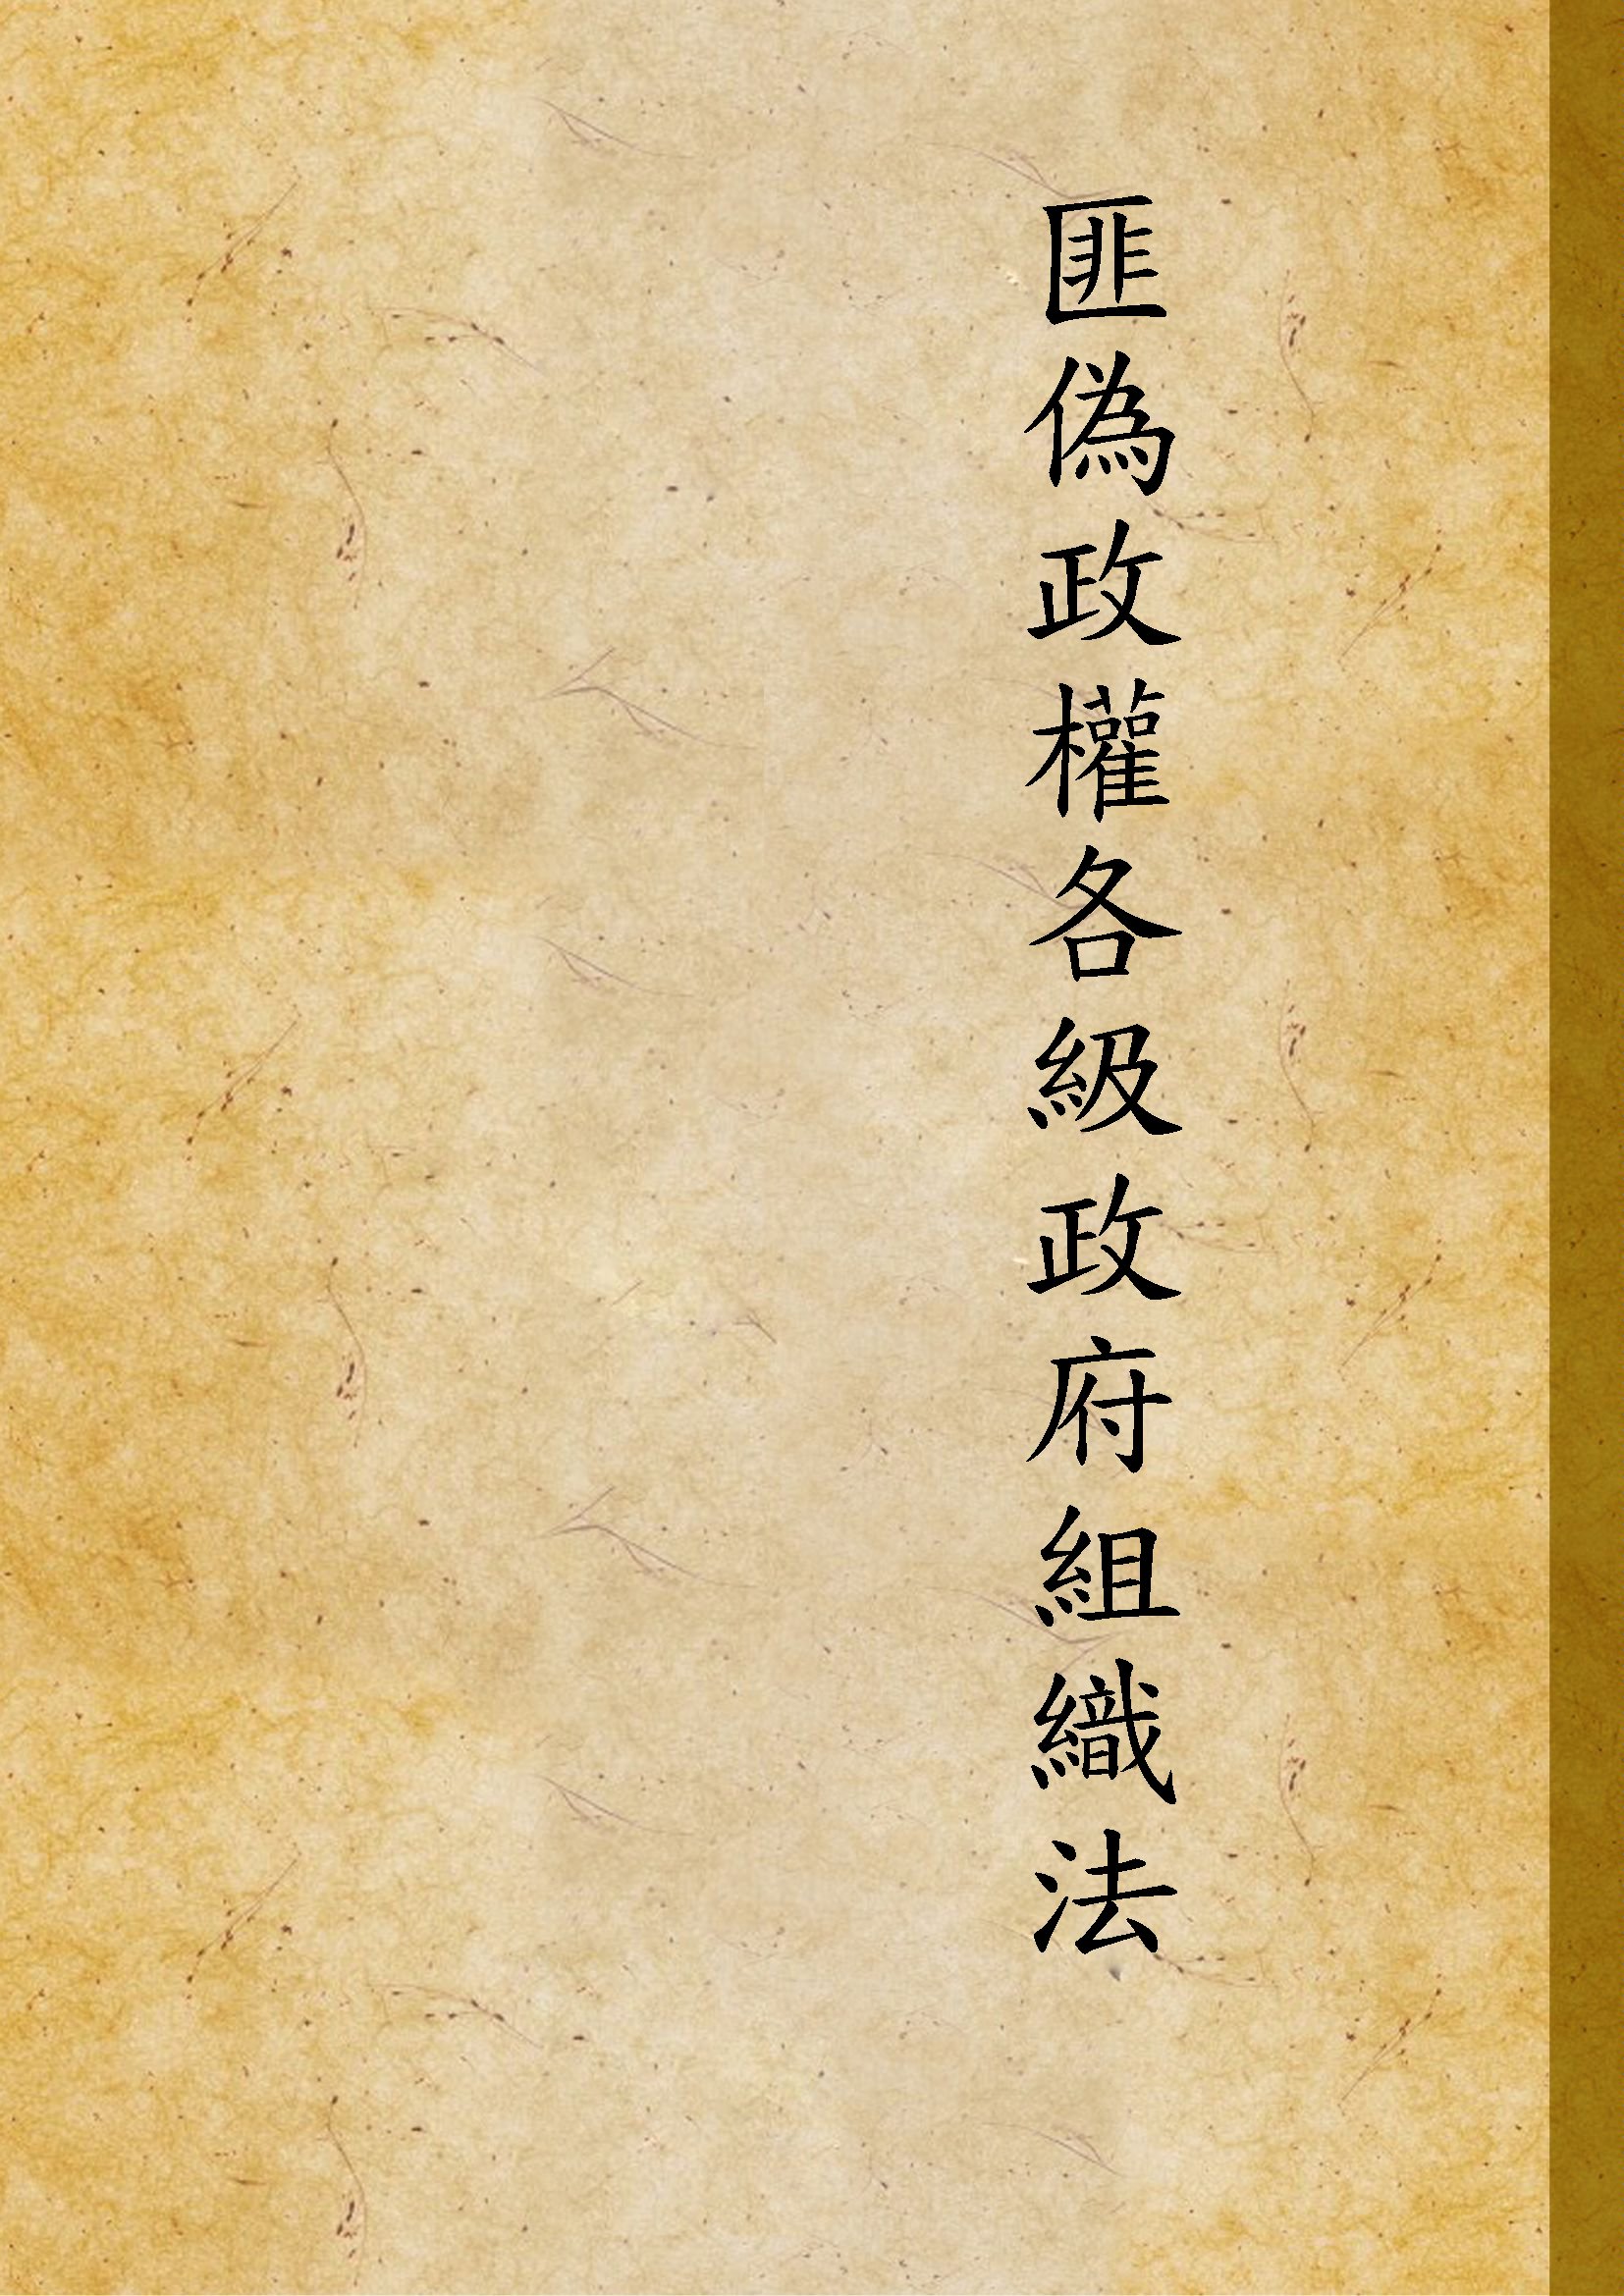 匪偽政權各級政府組織法